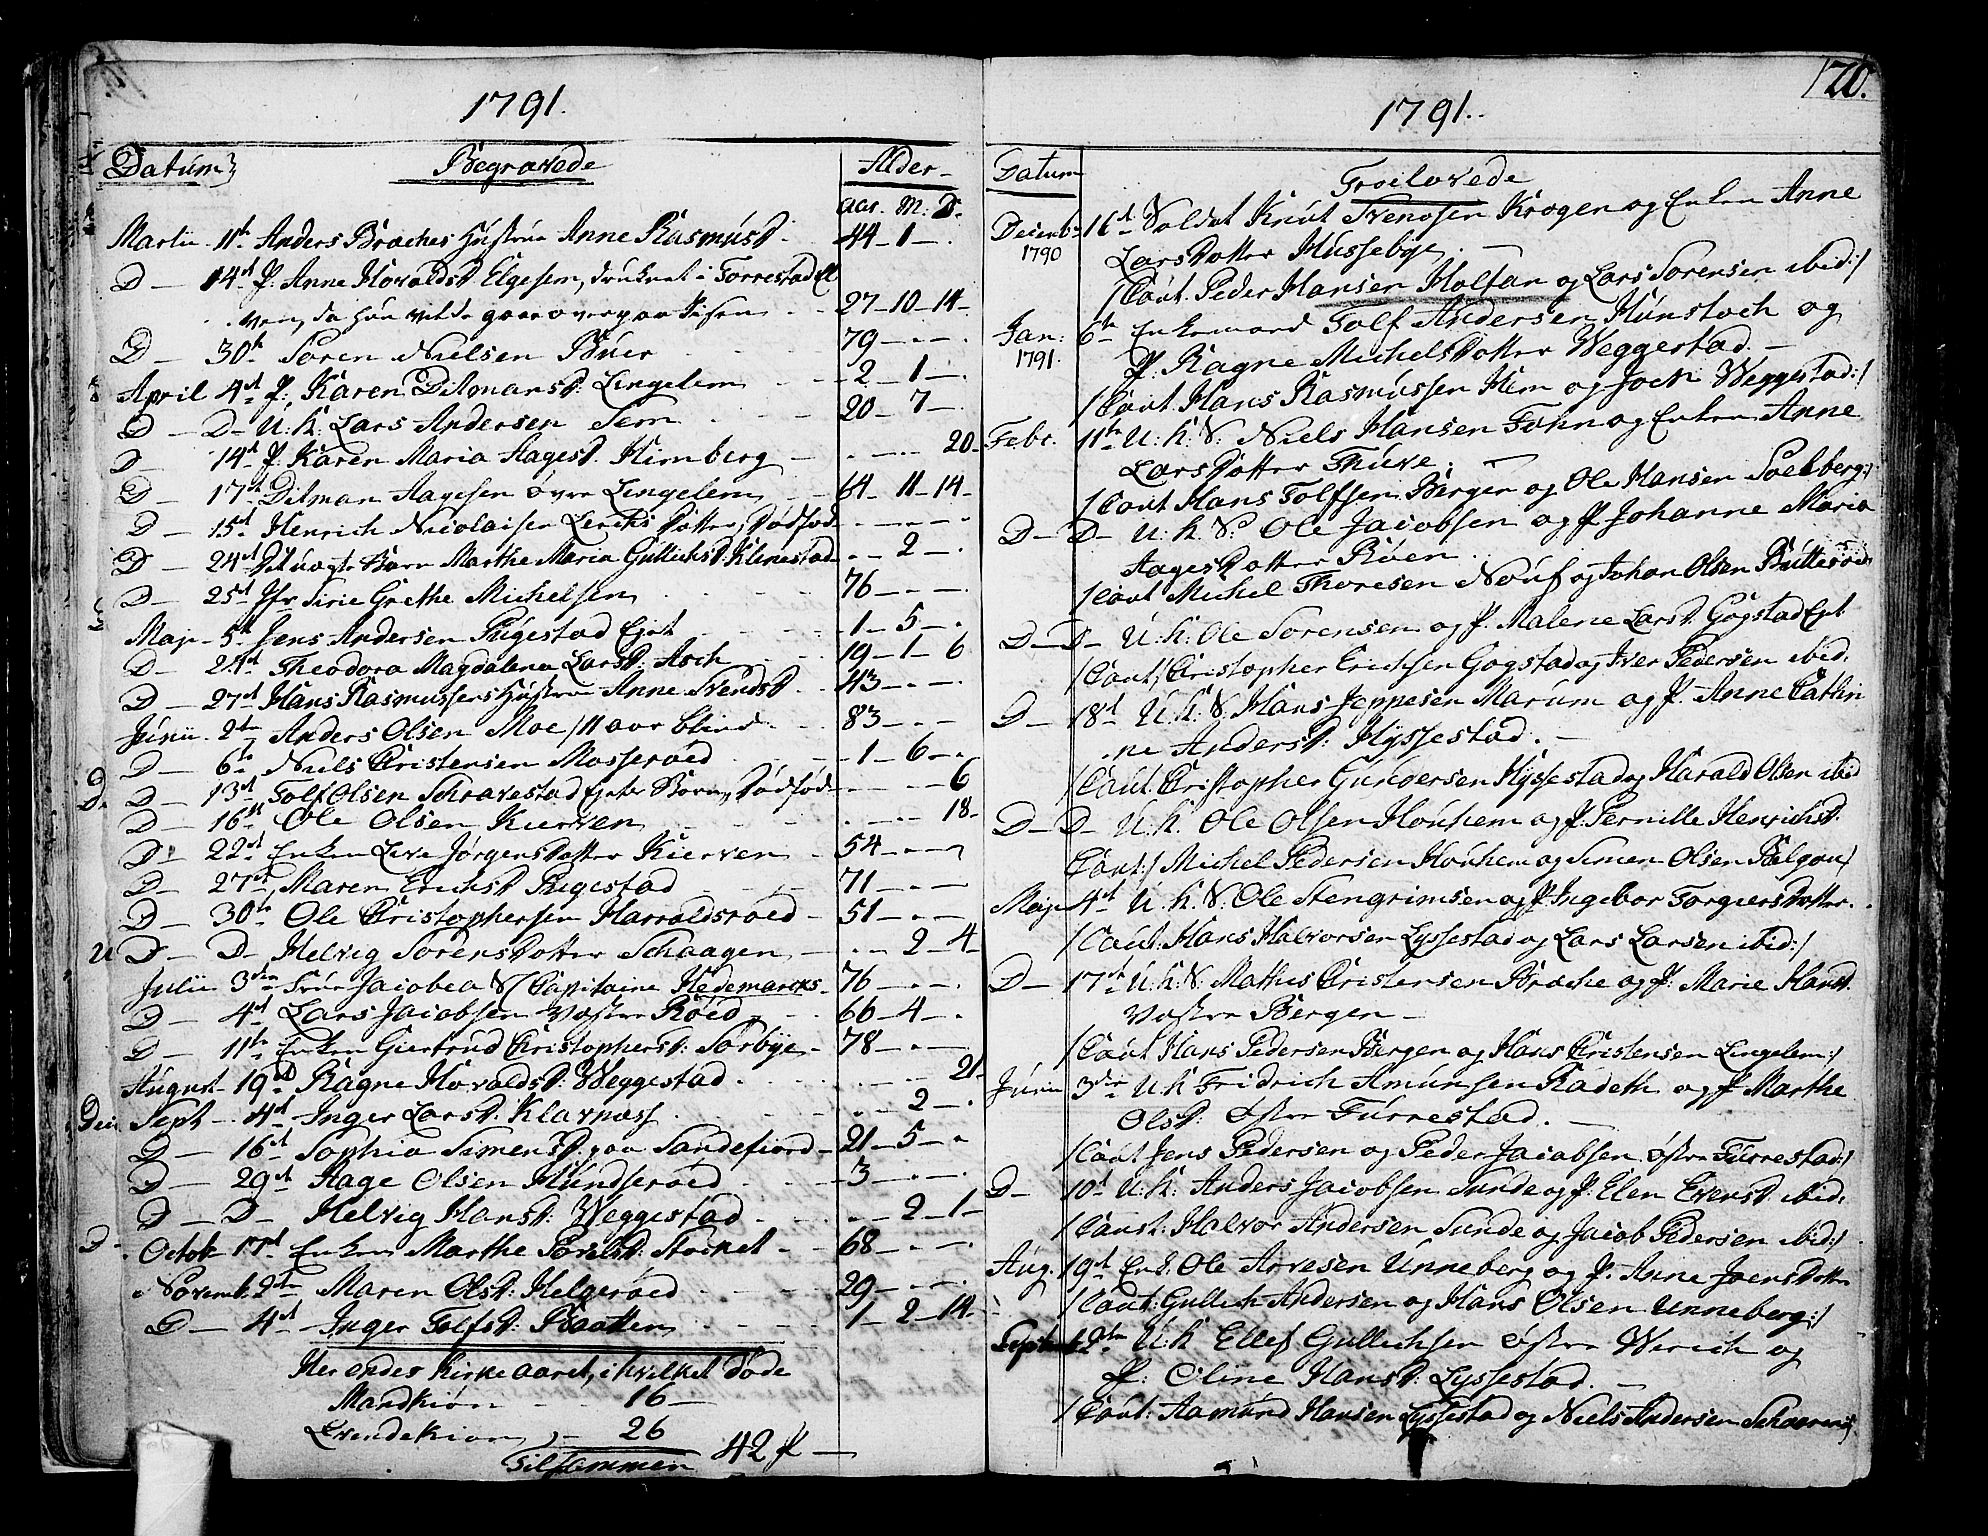 1791.
Datum Begravede Alder
Aar. M. D.
Martii 11te Anders Braches Hustrue Anne Rasmusd. 44 - 1 -
D - 14d P. Anne Haraldsd. Elgesem, druknet i Forrestad El
ven, da hun vilde gaae over paa Isen 27 - 10 - 14
D - 30te Soren Nielsen Buer 79 - -
April 4d P. Karen Ditmansd: Lingelem 2 - 1 -
D - D - U: K: Lars Andersen Sem 20 - 7 -
D - 14d P. Karen Maria Aagesd. Himberg - - 20
D - 17d Ditman Aagesen øvre Lingelem 64 - 11 - 14
D - 15d Henrich Nicolaisen Lerchs Dotter, Dødfød - - -
D - 24d Barn Marthe Maria Gullichsd. Klinestad - 2 -
D - 25d Jfr Sirie Grethe Michelsen 76 - -
Maji 5te Jens Andersen Rugestad Eget 1 - 5 -
D - 24d Theodora Magdalena Larsd. Asch 19 - 1 - 6
D - 27d Hans Rasmussens Hustru Anne Svendsd. 43 - -
Junii 2den Anders Olsen Moe / 11 aar blind 83 - -
D - 6te Niels Christensen Mosserøed 1 - 6 -
D - 13d Tolf Olsen Schravestad Barn, Dødfød - - 6
D - 16d Ole Olsen Kierven - - 18
D - 22d Enken Live Jørgensdotter Kierven 54 - -
D - 27d Maren Erichsd Rugestad 71 - -
D - 30te Ole Christophersen Harraldsroed 51 - -
D - D - Helvig Sorensdotter Schaagen - 2 - 4
Julii 3den Frue Jacobea S/ Capitaine Hedemarcks 76 - -
D - 4d Lars Jacobsen Vestre Røed 66 - 4 -
D - 11te Enken Giertrud Christophersd: Sørbye 78 - -
August 19d Ragne Haraldsd: Weggestad - - 21
Sept 4d Inger Larsd. Klavnæss - 2 -
D - 16d Sophia Simensd. paa Sandefiord 21 - 5 -
D - 29d Aage Olsen Mundserøed 3 - -
D - D - Helvig Hansd: Weggestad - 2 - 1
Octob 17d Enken Marthe Stocket 68 - -
Novemb. 2den Maren Olsd: Helgerøed 29 - -
D - 4d Inger Tolfsd: Raatten 1 - 2 - 14
Her endes Kirke aaret, i hvilket døde
Mandkiøn 16
Qvendekiøn 26
Tilsammen 42 P
120.
1791.
Datum Troelovede
Decemb. 16d Soldat Knut Svensen Krogen og Enken Anne
1790 Larsdotter Hussebye.
/Caut. Peder Hansen Holtan og Lars Sørensen ibid:/
Jan: 6te Enkemand Tolf Andersen Hunstoch og
1791 P: Ragne Michelsdotter Weggestad.
/Caut. Hans Rasmussen Hem og Jock Weggestad:/
Febr. 11te U: K: S: Niels Hansen Fohn og Enken Anne
Larsdotter Thuve.
/Caut Hans Tolfsen Bergen og Ole Hansen Solberg:/
D - D - U. K. S. Ole Jacobsen og P Johanne Maria
Aagesdotter Røen.
/Caut Michel Thoresen Nouf og Johan Olsen Butterød
D - D - U: K: Ole Sorensen og P. Malene Larsd. Gogstad Eget
/Caut/ Christopher Erichsen Gogstad og Iver Pedersen ibid.
D - 18d U: K: S. Hans Jeppesen Marum og P. Anne Cathri
ne Andersd: Hyssestad.
/Caut: Christopher Gundersen Hyssestad og Harald Olsen ibid
D - D - U: K: Ole Olsen Houkem og P. Pernille Henrichsd.
Caut:/ Michel Pedersen Houkem og Simen Olsen Bælgou/
Maji 4d U: K: S. Ole Stengrimsen og P. Ingebor Torgiersdotter.
/Caut: Hans Halvorsen Lyssestad og Lars Larsen ibid:/
D - 17de U: K: S. Mathis Christensen Brache og P: Marie Hansd.
Vestre Bergen
/Caut Hans Pedersen Bergen og Hans Christensen Lingelem:/
Junii 3die U: K Fridrich Amunsen Radeth og P Marthe
Olsd: Østre Furrestad.
/Caut Jens Pedersen og Peder Jacobsen Østre Furrestad:/
D - 10d U: K: Anders Jacobsen Sunde og P. Elen Evensd. ibid.
/Caut: Halvor Andersen Sunde og Jacob Pedersen ibid:/
Aug. 19d Enk. Ole Arvesen Unneberg og P. Anne Joensdotter
/Caut: Gullich Andersen og Hans Olsen Unneberg:/
Septemb. U: K Ellef Gullichsen Østre Werich og
P: Oline Hansd: Lyssestad.
/Caut: Aamund Hansen Lyssestad og Niels Andersen